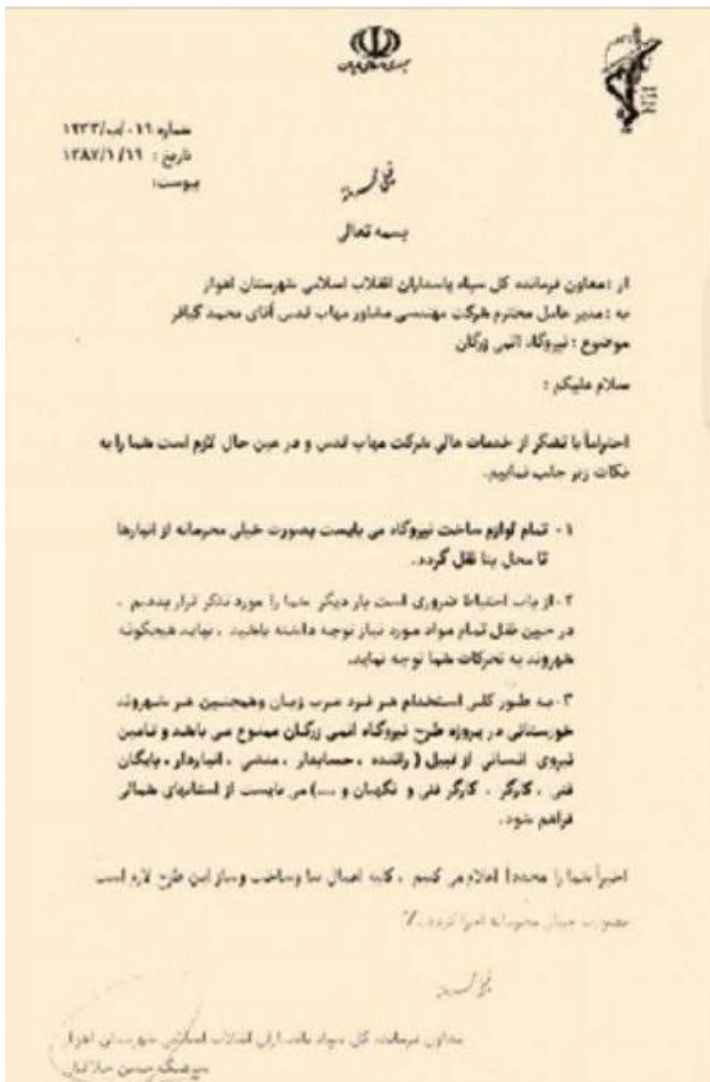 جمهوری اسلامی ایران
شماره ۰۱۶/ب/۱۹۳۳
تاریخ : ۱۳۸۷/۱/۱۹
پیوست:
خیلی محرمانه
بسمه تعالی
از : معاون فرمانده کل سپاه پاسداران انقلاب اسلامی شهرستان اهواز
به : مدیر عامل محترم شرکت مهندسی مشاور مهاب قدس آقای محمد
موضوع : نیروگاه اتمی زرگان
سلام علیکم :
احتراماً با تشکر از خدمات عالی شرکت مهاب قدس و در عین حال لازم است شما را به
نکات زیر جلب نماییم.
۱- تمام لوازم ساخت نیروگاه می بایست بصورت خیلی محرمانه از انبارها
تا محل بنا نقل گردد.
۲- از باب احتیاط ضروری است بار دیگر شما را مورد تذکر قرار بدهیم ،
در حین نقل تمام مواد مورد نیاز توجه داشته باشید ، نباید هیچگونه
شهروند به تحرکات شما توجه نماید.
۳- به طور کلی استخدام هر فرد عرب زبان وهمچنین هر شهروند
خوزستانی در پروژه طرح نیروگاه اتمی زرگان ممنوع می باشد و تامین
نیروی انسانی از قبیل ( راننده ، حسابدار ، منشی ، انباردار ، بایگان
فنی ، کارگر ، کارگر فنی و نگهبان و ....) می بایست از استانهای شمالی
فراهم شود.
اخیراً شما را مجددا اعلام می کنیم ، کلیه اعمال بنا وساخت وساز این طرح لازم است
بصورت محرمانه اجرا گردد./
خیلی محرمانه
معاون فرمانده کل سپاه پاسداران انقلاب اسلامی شهرستان اهواز
سرهنگ حسن